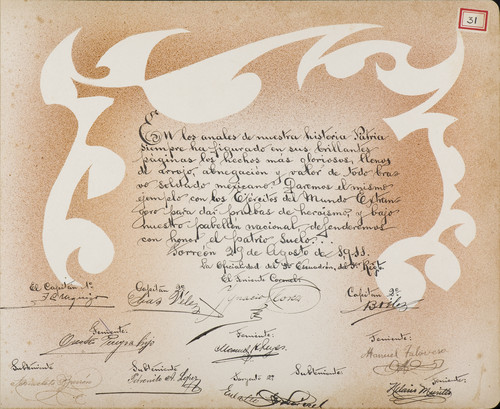 31
En los anales de nuestra historia Patria
siempre ha figurado en sus brillantes
páginas los hechos más gloriosos, llenos
de arrojo, abnegación y valor de todo bra-
vo soldado mexicano. Daremos el mismo
ejemplo con los Ejércitos del Mundo Extran-
gero para dar pruebas de heroismo, y bajo
nuestro pabellón nacional defenderemos
con honor el patrio Suelo.
Torreón 2 de Agosto de 1911.
La Oficialidad del Escuadrón del Regto
El Teniente Coronel
El Capitán 1º
Capitán 2º
Ignacio Flores
Capitán 2º
Luis Vélez
Teniente
Teniente
Teniente
Crescente
Manuel Reyes
Manuel Talavera
Subteniente
Subteniente
Sargento 2º
Subteniente
Petronilo A. López
Hilario Murillo